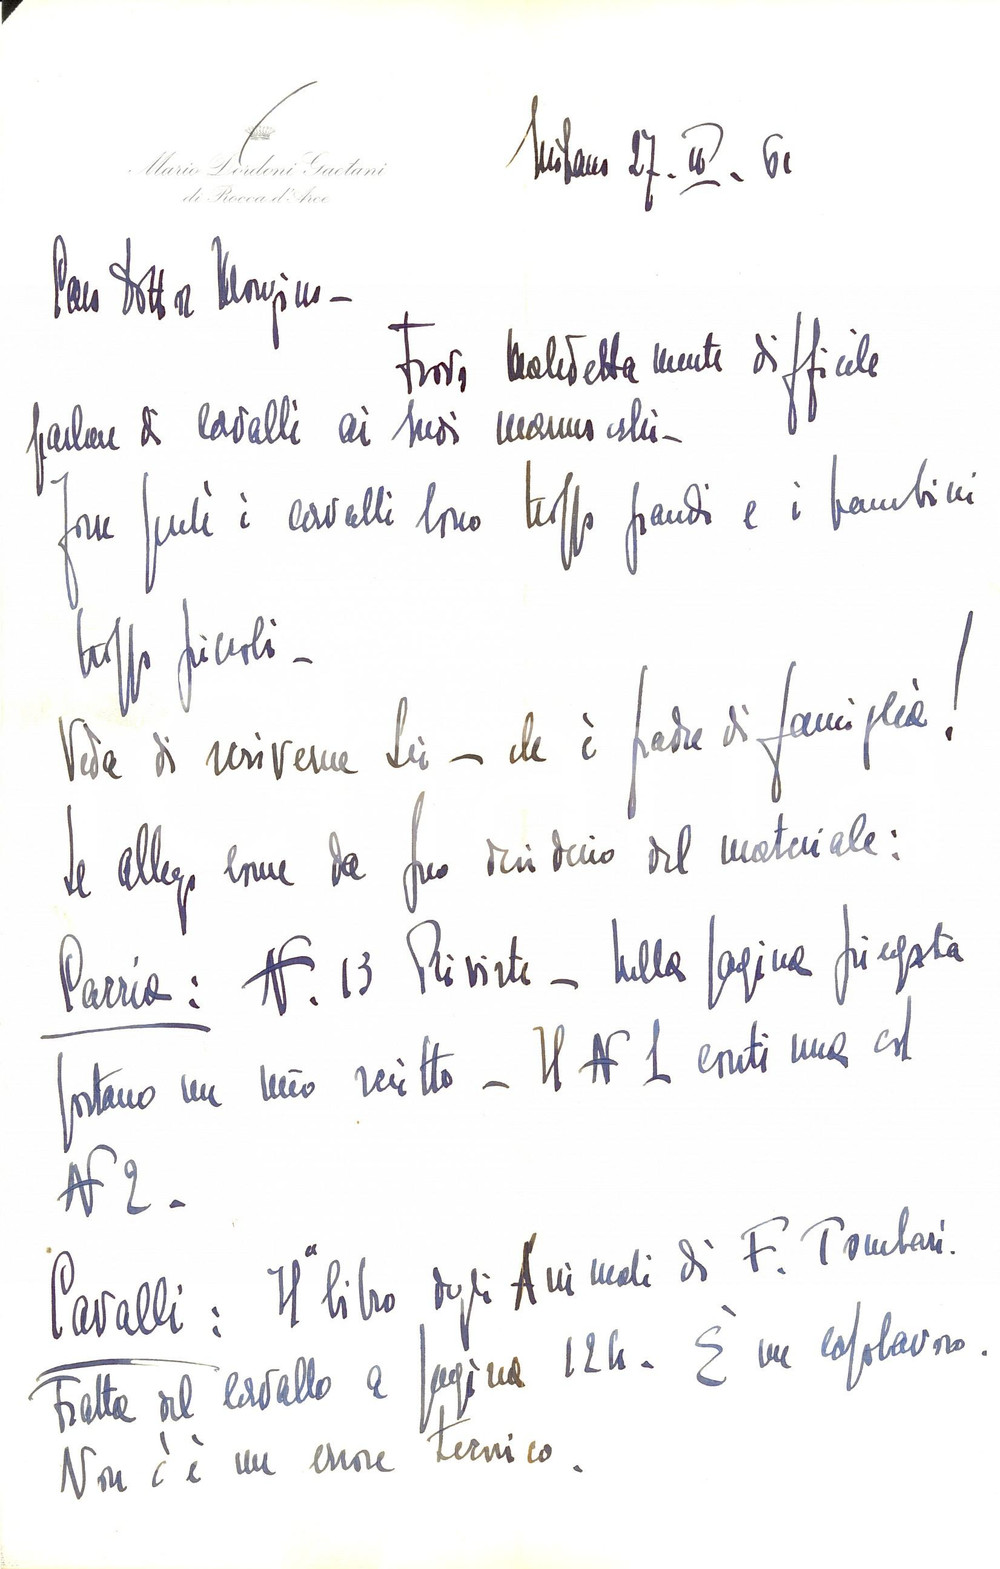 Mario Lordoni Gaetani
di Rocca d'Arce
Milano 27. IV. 61
Caro Dottor
Trovo maledettamente difficile
parlare di cavalli ai suoi marmocchi –
Forse perché i cavalli sono troppo grandi e i bambini
troppo piccoli –
Veda di scriverne Lei – che è padre di famiglia!
Le allego come da suo desiderio del materiale:
Caccia: N. 13 Riviste – Nella pagina piegata
portano un mio scritto – Il N 1 continua col
N 2 –
Cavalli: Il "libro degli Animali di F. Tombari.
Tratta del cavallo a pagina 124. È un capolavoro.
Non c'è un errore tecnico.